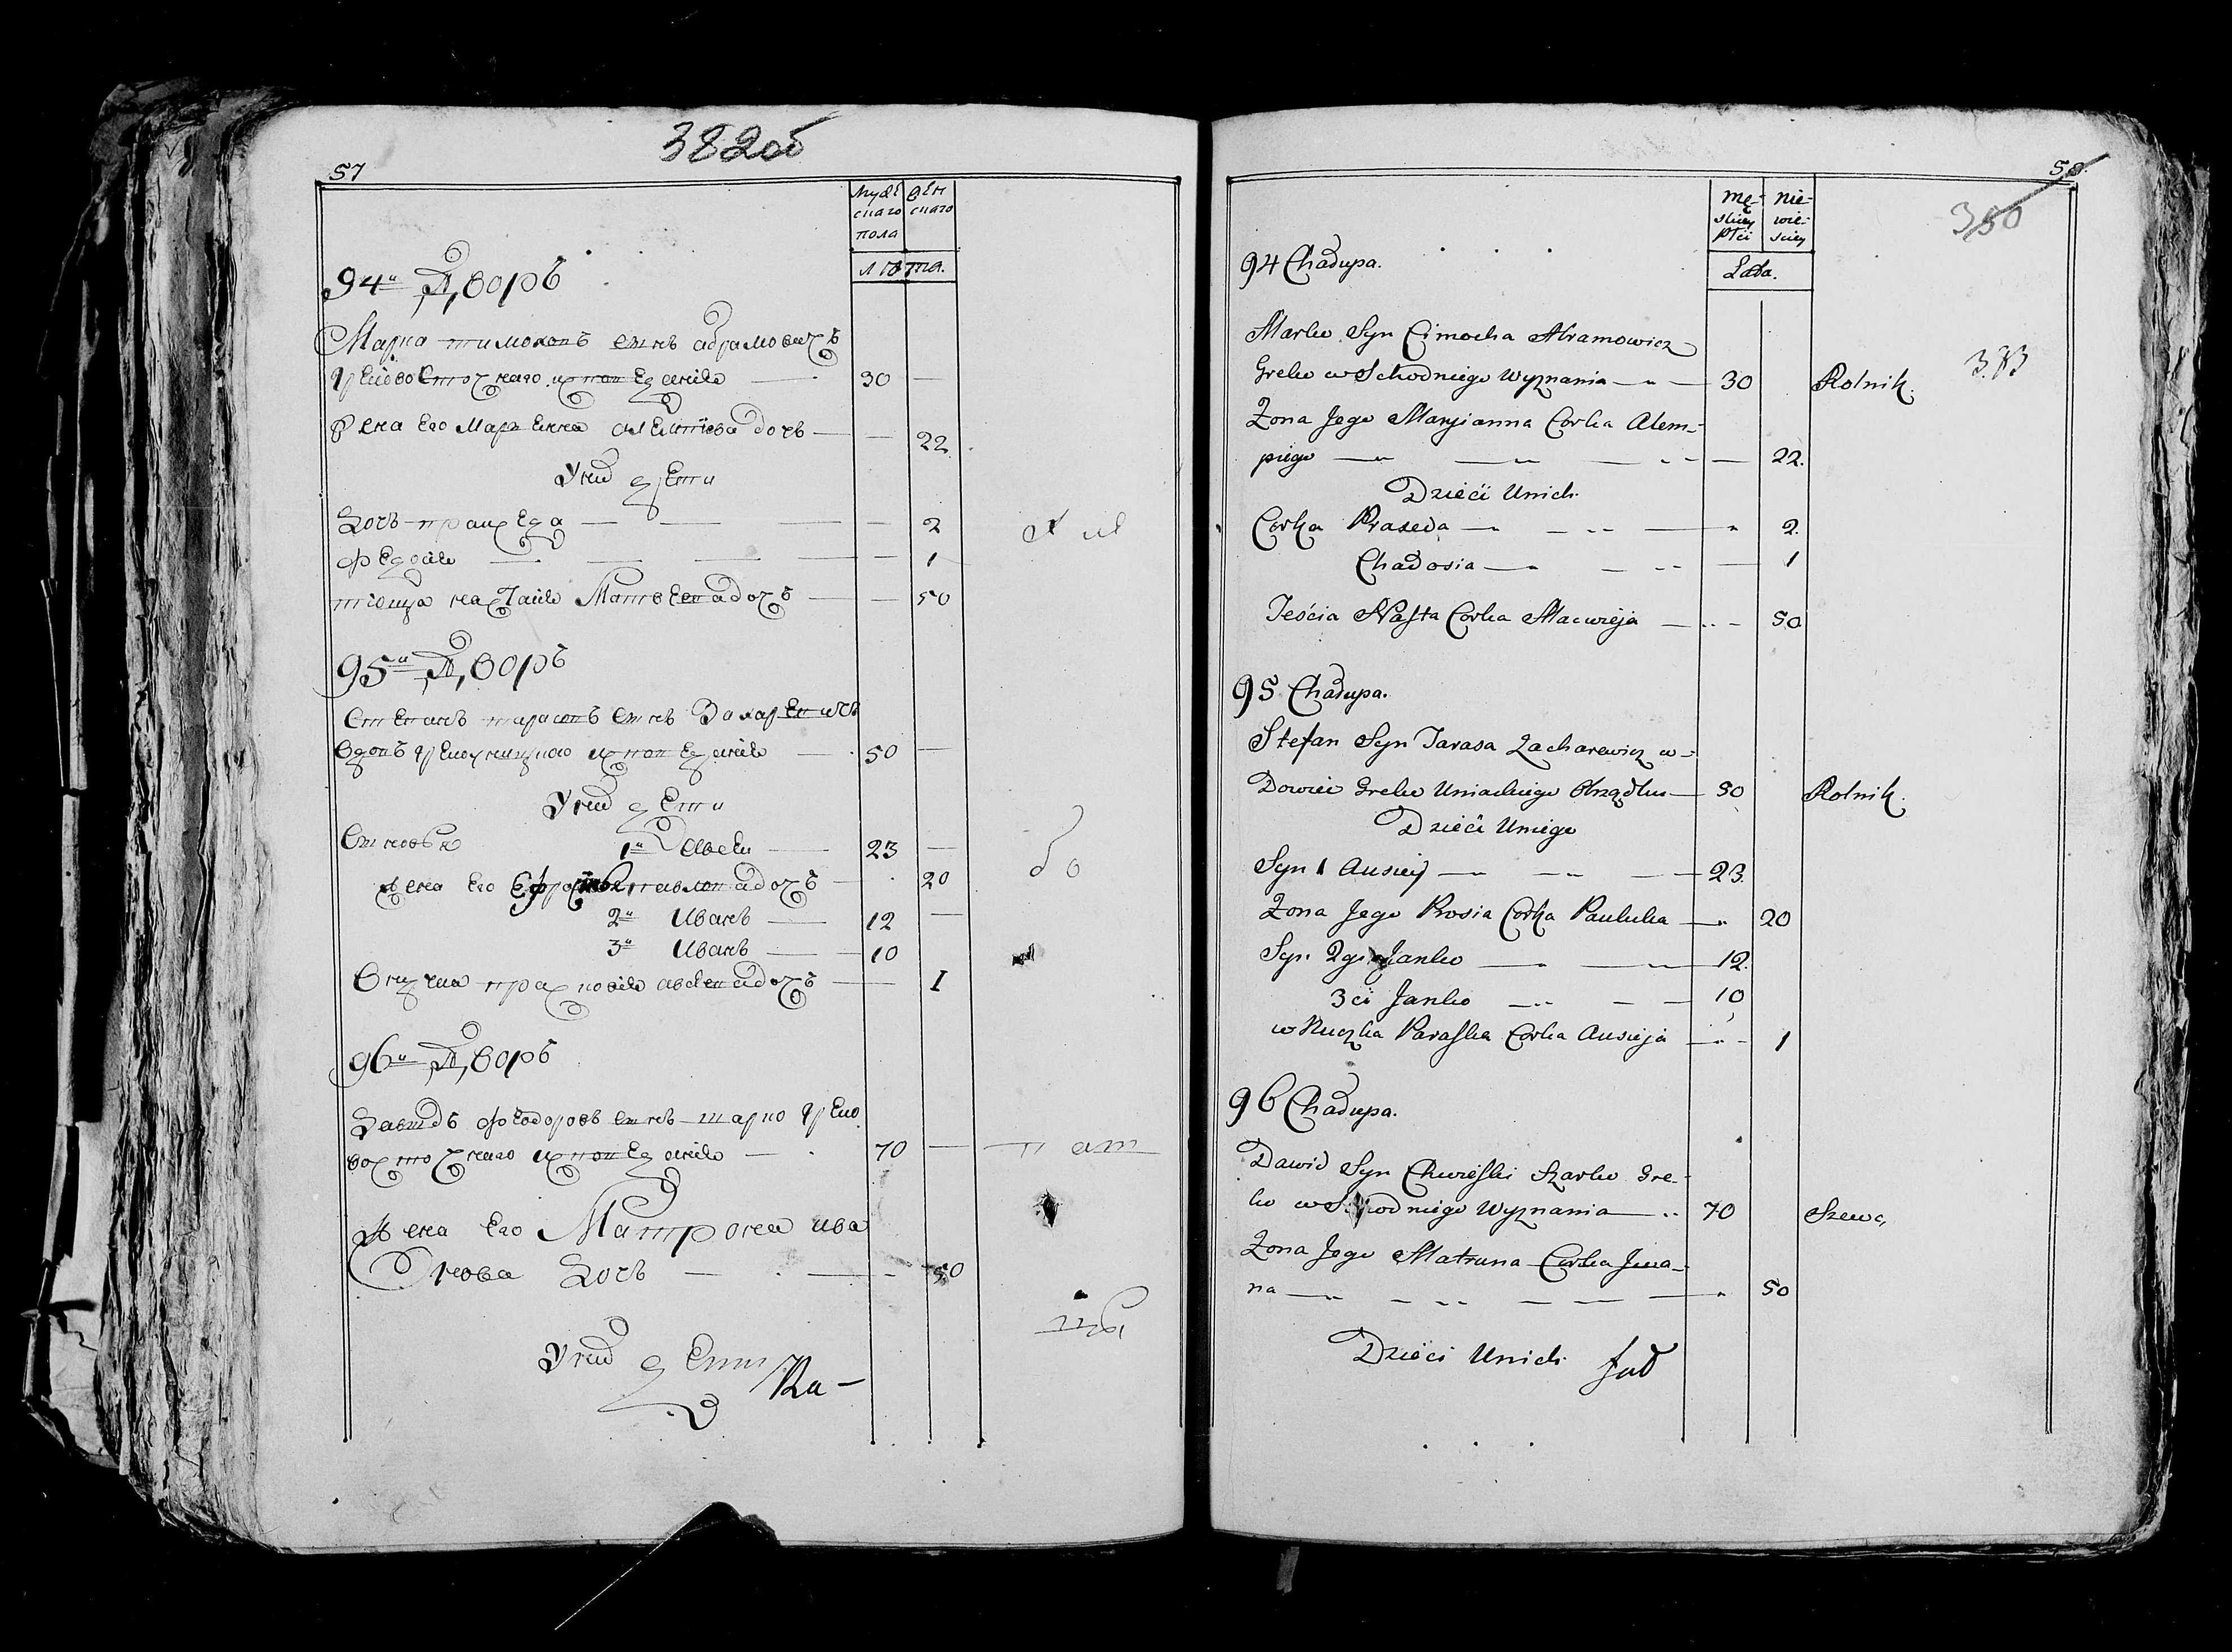 382об
57
Мужескаго пола
женскаго
лѣта.
94й Дворъ
Марко тимоховъ сынъ абрамовичъ
греко восточнаго исповеданія — 30 —
жена его Марьянна алемпіева дочь — — 22
У нихъ дети
дочь праиеда — — — 2
федосія — — — — 1
тіоща настасія Матвеева дочъ — — 50
95й Дворъ
Степанъ тарасовъ сынъ Захаревичъ
вдовъ греко униицкаго исповеданія — 50 —
У нихъ дети
Сыновья 1й Авсеи — 23 —
жена его Ефросинья павлова дочъ — 20
2й Иванъ — 12 —
3й Иванъ — 10
Внучка прасковія авсеева дочъ — — 1
96й Дворъ
Давыдъ федоровъ сынъ шарко греко
восточнаго исповеданія — 70 —
жена его Матрона ива
нова дочь — — 50
У нихъ дети
58.
350
383
męskiey płci
niewieściey
Lata.
94 Chałupa.
Marko Syn Cimocha Abramowicz
Greko wSchodniego Wyznania — 30 Rolnik.
Żona Jego Maryianna Corka Alem-
piego — — — 22.
Dzieći Unich
Corka Praxeda — — — 2.
Chadosia — — — 1
Teśćia Nasta Corka Macwieja — 50
95 Chałupa.
Stefan Syn Tarasa Zacharewicz w-
Dowiec Greko Uniackiego Obrządku — 50 Rolnik.
Dzieći Uniego
Syn 1 Ausiey — — — 23.
Żona Jego Prosia Corka Pauluka — 20
Syn 2gi Janko — — 12.
3ci Janko — — 10
wNuczka Paraska Corka Ausieja — 1
96 Chałupa.
Dawid Syn Chwieśki Szarko Gre-
ko wSchodniego Wyznania — 70 Szewc,
Żona Jego Matruna Corka Jwa-
na — — — 50
Dzieći Unich